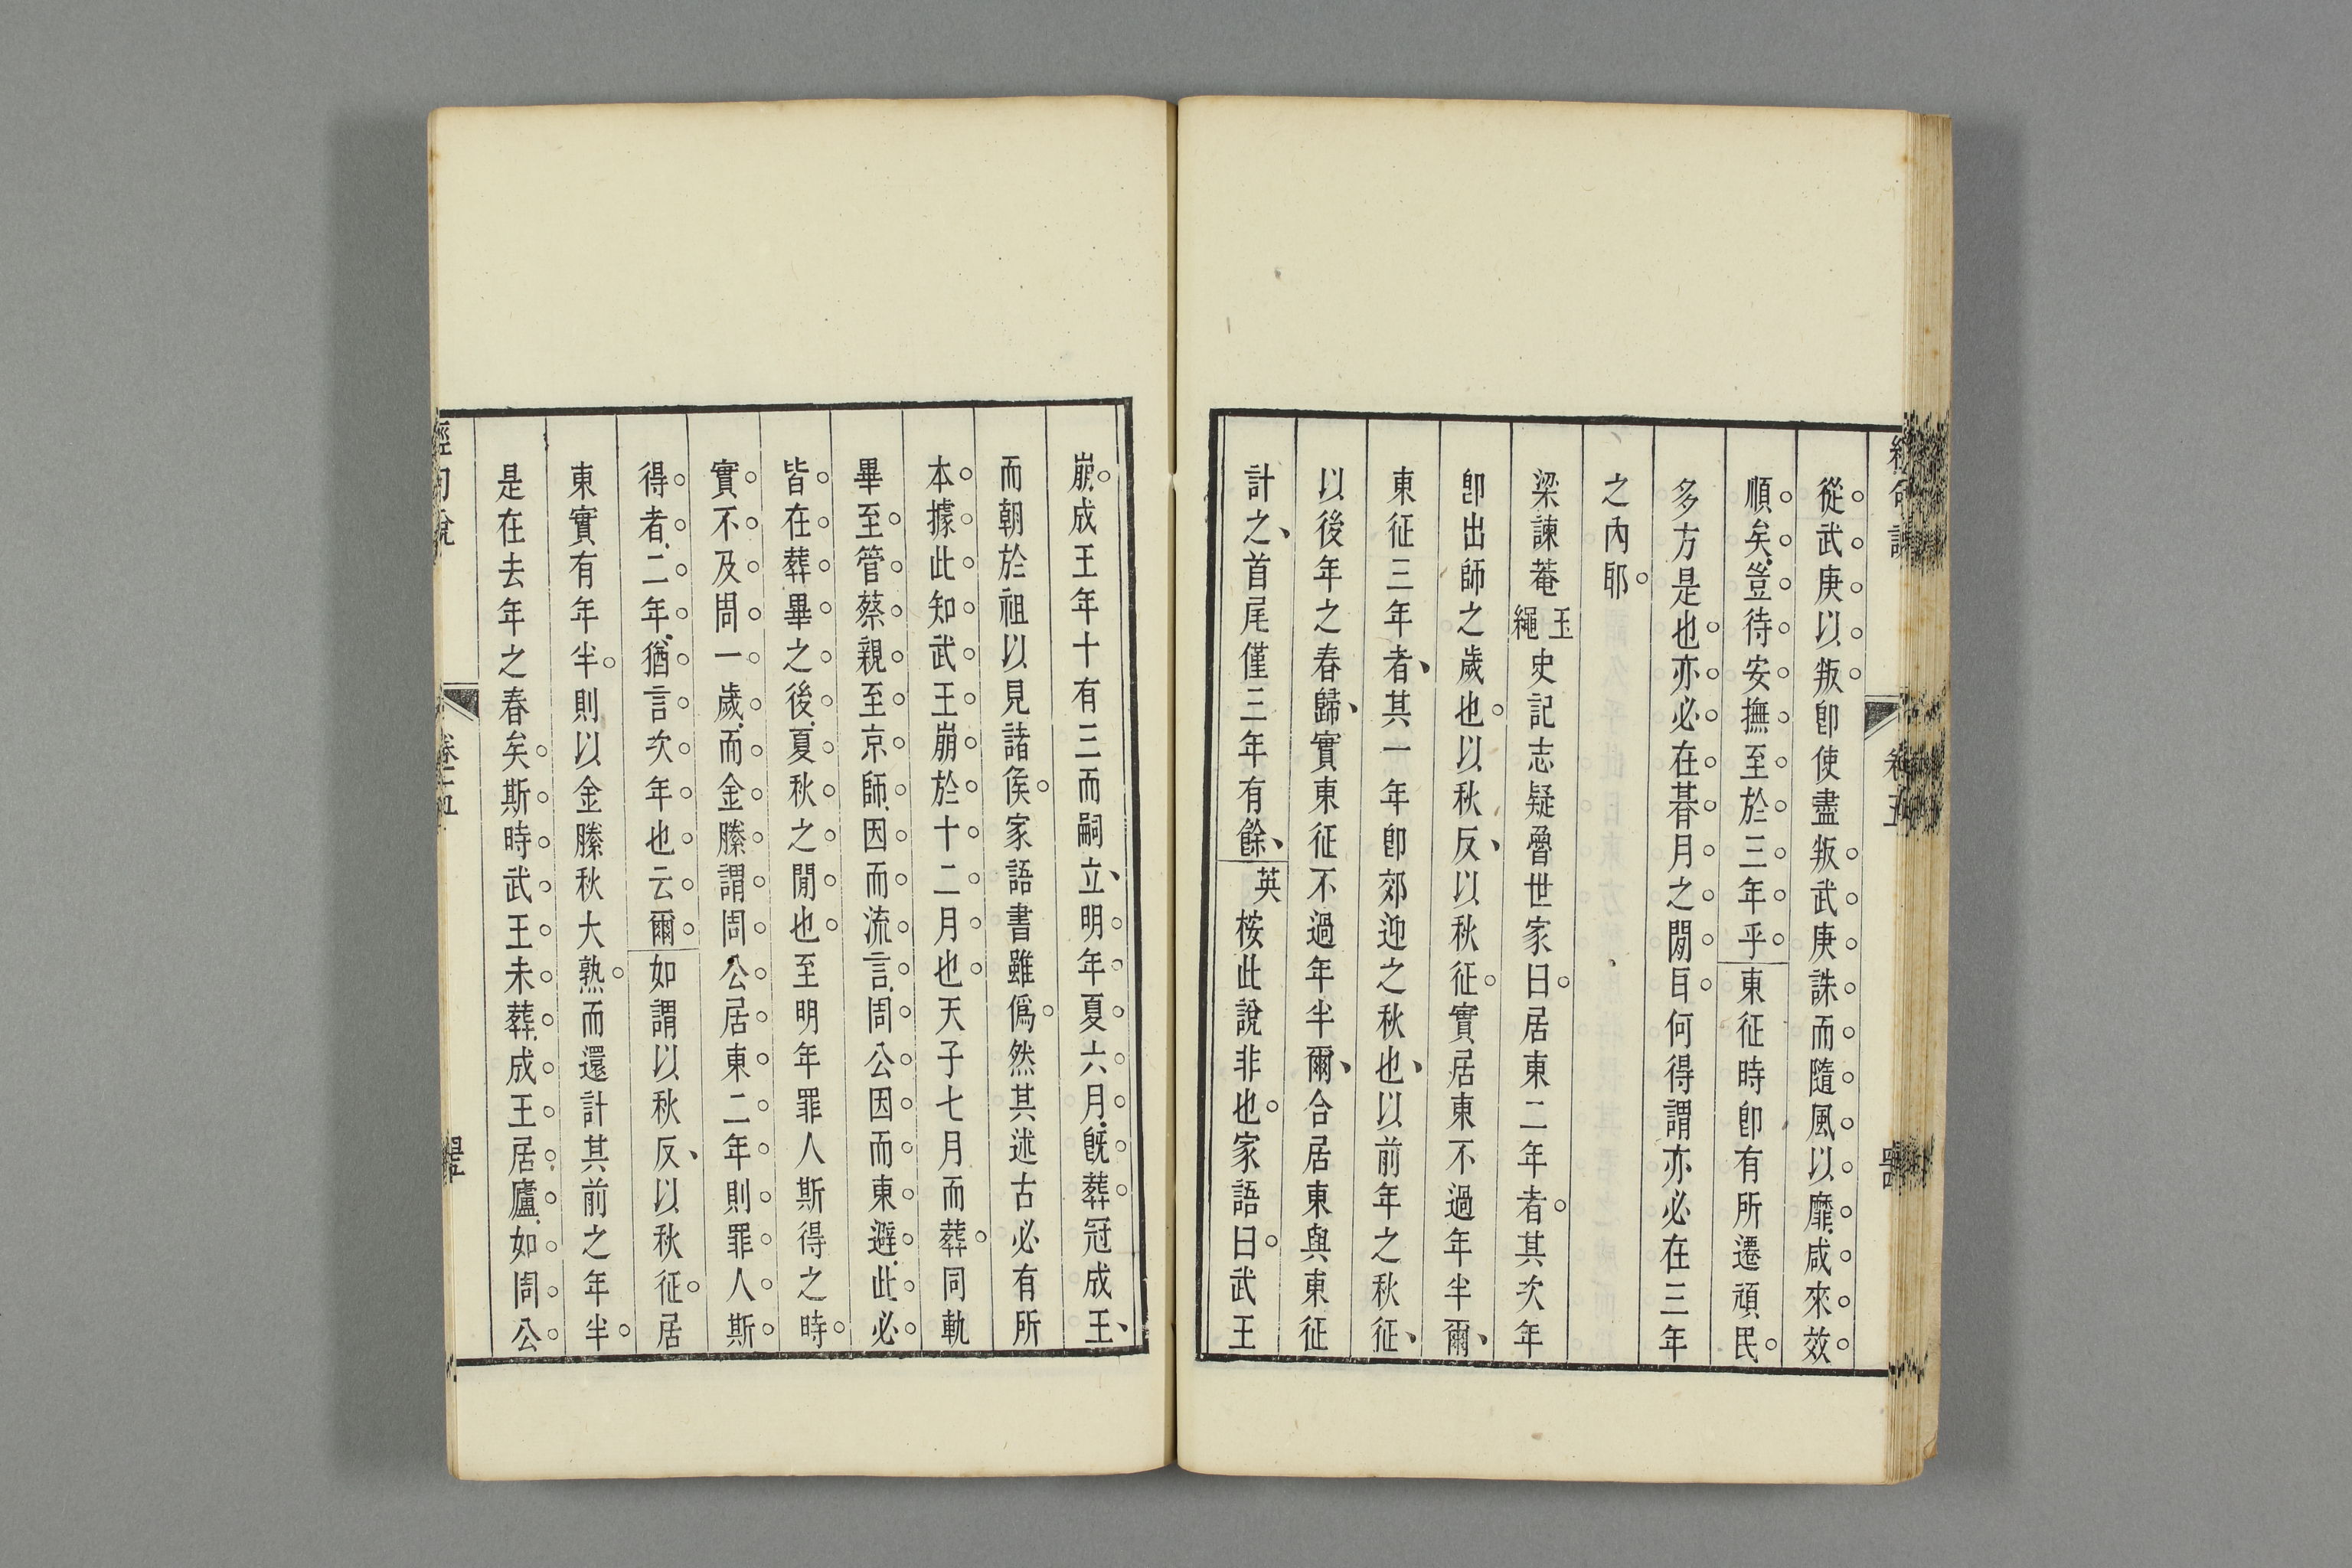 從武庚以叛卽使盡叛武庚誅而隨風以靡咸來效
順矣豈待安撫至於三年乎東征時卽有所遷頑民
多方是也亦必在朞月之閒耳何得謂亦必在三年
之內耶
梁諫菴玉繩史記志疑魯世家曰居東二年者其次年
卽出師之歲也以秋反以秋征實居東不過年半爾
東征三年者其一年卽郊迎之秋也以前年之秋征
以後年之春歸實東征不過年半爾合居東與東征
計之首尾僅三年有餘英桉此說非也家語曰武王
崩成王年十有三而嗣立明年夏六月旣葬冠成王
而朝於祖以見諸侯家語書雖僞然其述古必有所
本據此知武王崩於十二月也天子七月而葬同軌
畢至管蔡親至京師因而流言周公因而東避此必
皆在葬畢之後夏秋之閒也至明年罪人斯得之時
實不及周一歲而金縢謂周公居東二年則罪人斯
得者二年猶言次年也云爾如謂以秋反以秋征居
東實有年半則以金縢秋大熟而還計其前之年半
是在去年之春矣斯時武王未葬成王居廬如周公
經句說